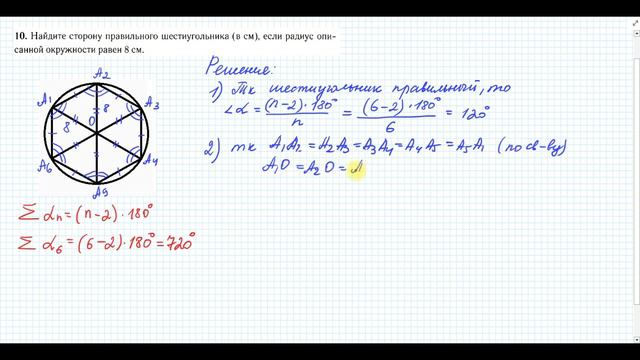 10. Найдите сторону правильного шестиугольника (в см), если радиус опи-
санной окружности равен 8 см.
Решение:
1) Тк шестиугольник правильный, то
∠α = (n-2)·180° / n = (6-2)·180° / 6 = 120°
2) тк A1A2 = A2A3 = A3A4 = A4A5 = A5A1 (по св-ву)
A1O = A2O = A
A2
A1
A3
8
O
8
A6
A4
A5
∑ αn = (n-2)·180°
∑ α6 = (6-2)·180° = 720°